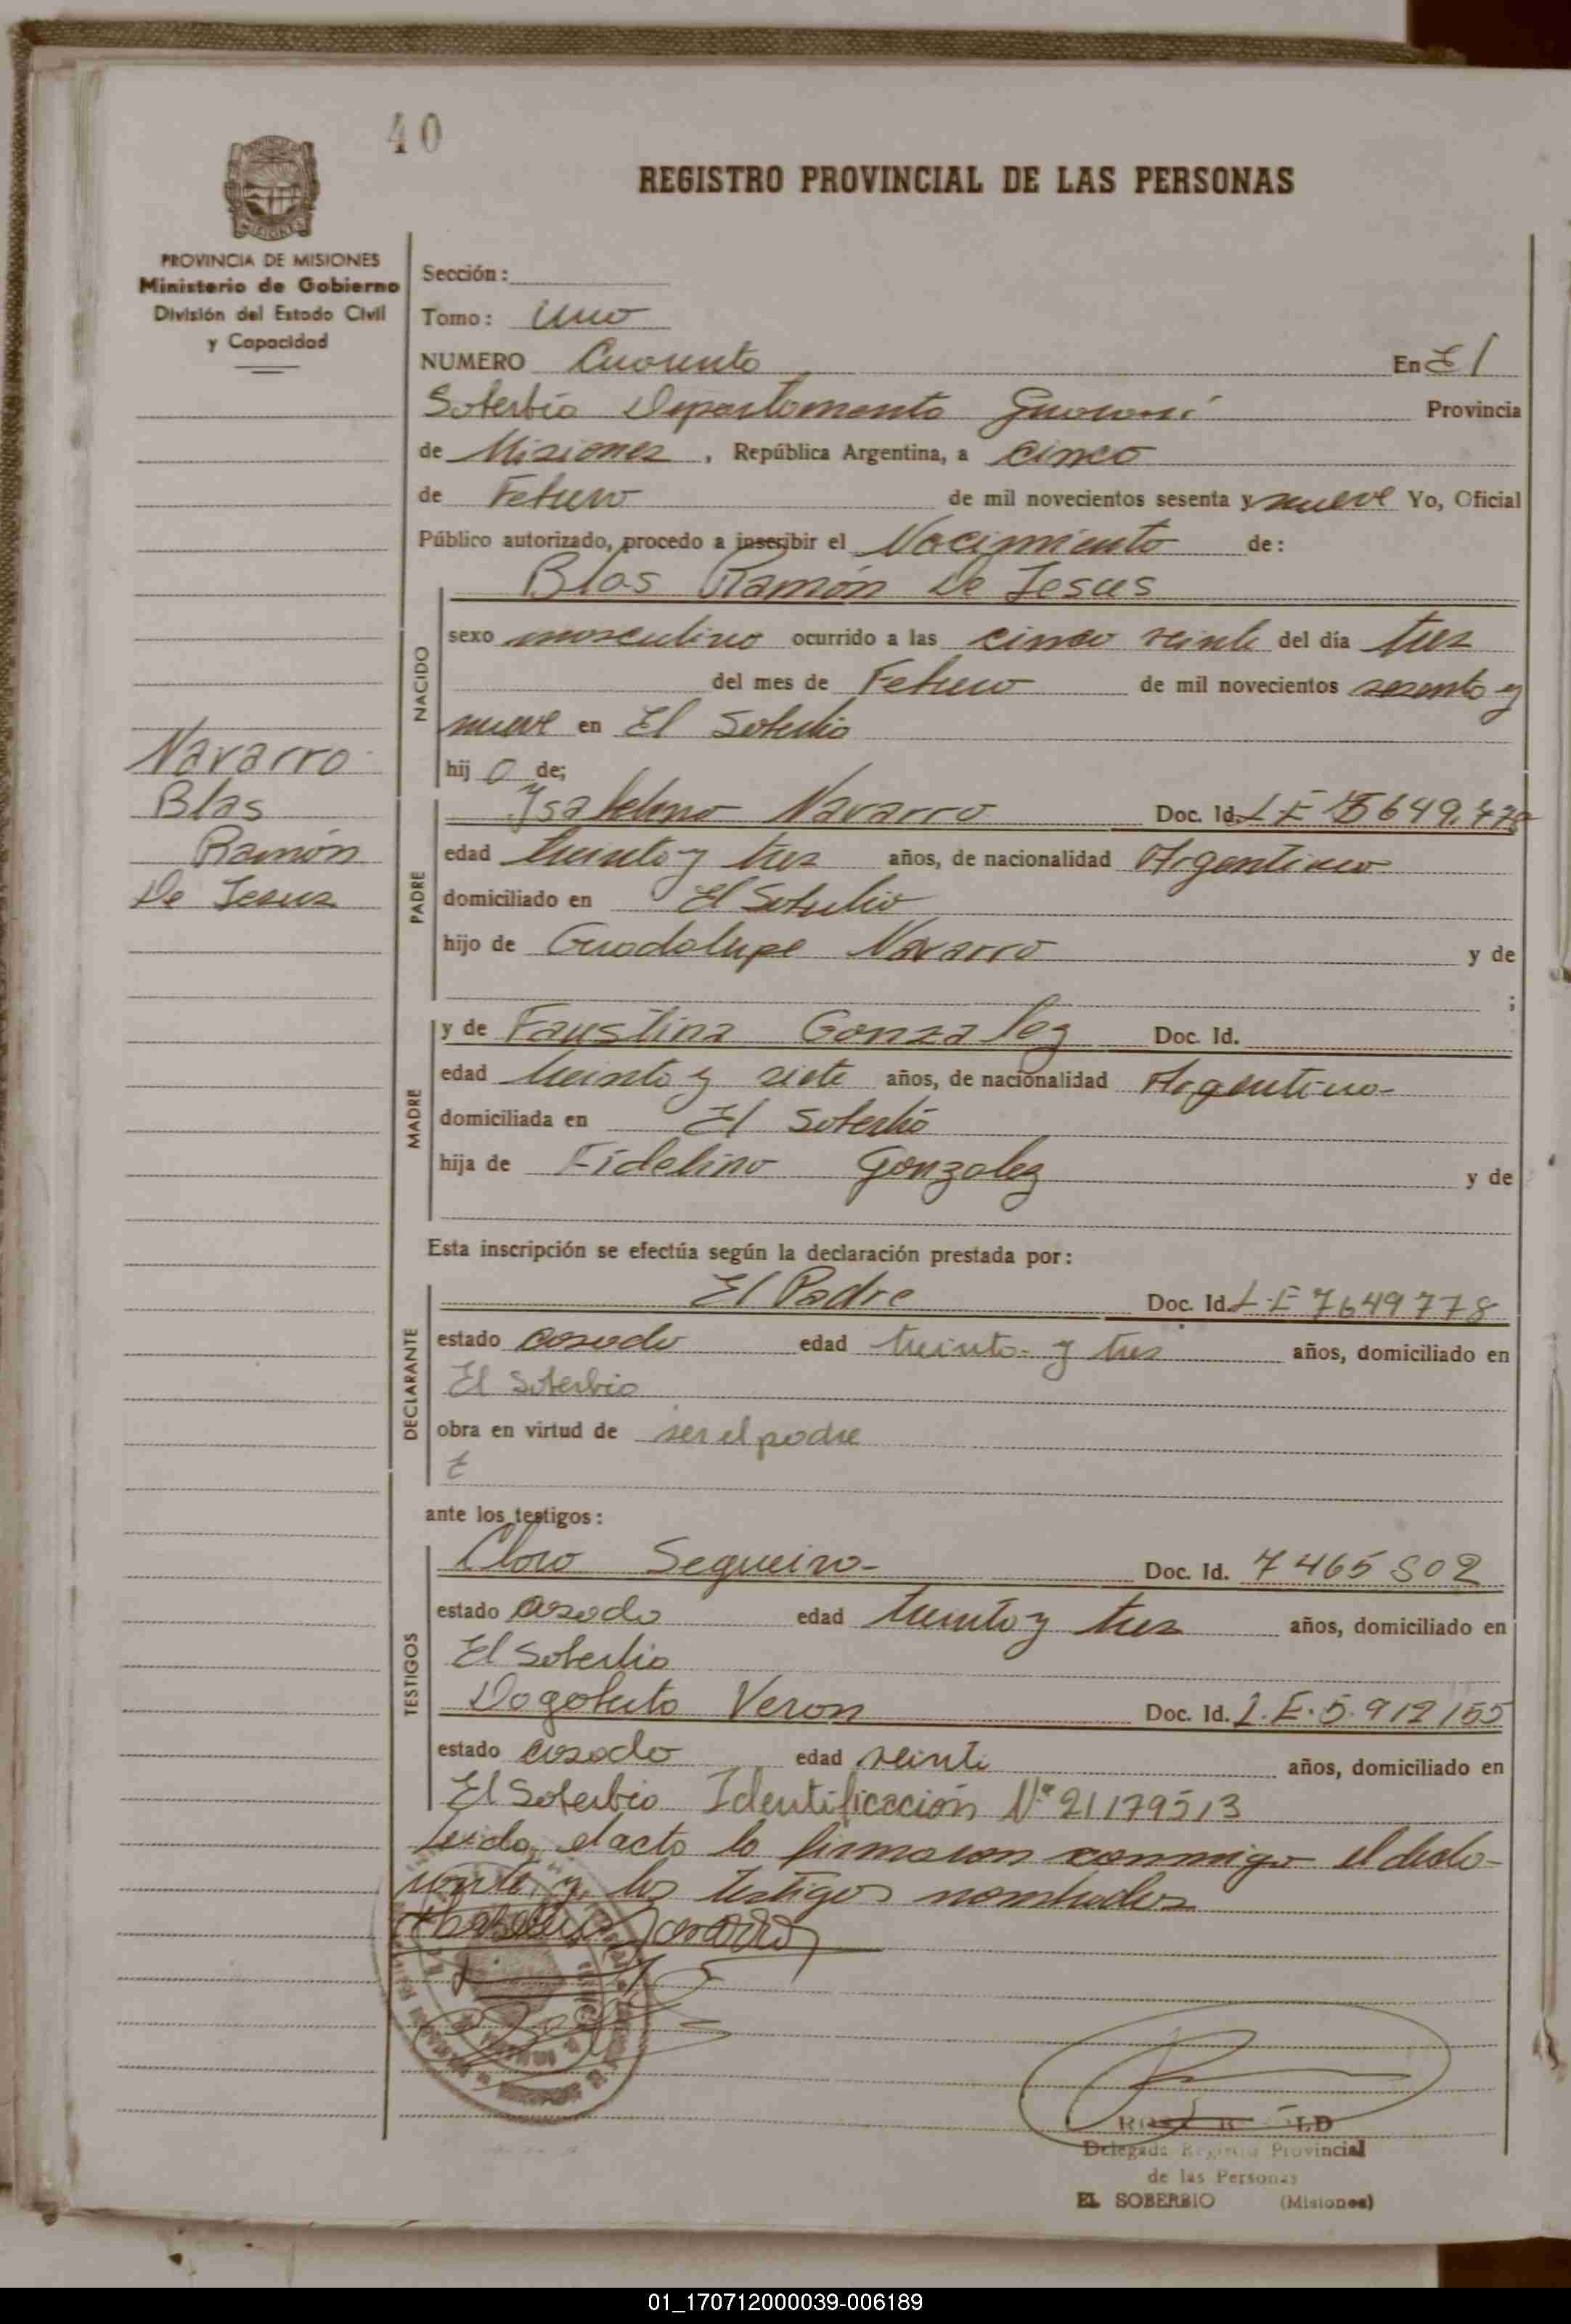 40
REGISTRO PROVINCIAL DE LAS PERSONAS
PROVINCIA DE MISIONES
Ministerio de Gobierno
División del Estado Civil
y Capacidad
Sección:
Tomo: Uno
NUMERO Cuarenta En El
Soberbio Departamento Guaraní Provincia
de Misiones, República Argentina, a cinco
de Febrero de mil novecientos sesenta y nueve Yo, Oficial
Público autorizado, procedo a inscribir el Nacimiento de:
Blas Ramón De Jesus
NACIDO
sexo masculino ocurrido a las cinco veinte del día tres
del mes de Febrero de mil novecientos sesenta y
nueve en El Soberbio
hij o de;
Navarro
Blas
Ramón
De Jesus
PADRE
Ysabelino Navarro Doc. Id. L E 7649.778
edad treinta y tres años, de nacionalidad Argentino
domiciliado en El Soberbio
hijo de Guadalupe Navarro y de
;
MADRE
y de Faustina Gonzalez Doc. Id.
edad treinta y siete años, de nacionalidad Argentina
domiciliada en El Soberbio
hija de Fidelino Gonzalez y de
Esta inscripción se efectúa según la declaración prestada por:
DECLARANTE
El Padre Doc. Id. L-E 7649778
estado casado edad treinta y tres años, domiciliado en
El Soberbio
obra en virtud de ser el padre
ante los testigos:
TESTIGOS
Claro Sequeira Doc. Id. 7465802
estado casado edad treinta y tres años, domiciliado en
El Soberbio
Dagoberto Veron Doc. Id. L.E.5.912155
estado casado edad veinte años, domiciliado en
El Soberbio Identificación Nº 21179513
Leida el acta la firmaron conmigo el decla-
rante y los testigos nombrados
Delegada Registro Provincial
de las Personas
EL SOBERBIO (Misiones)
01_170712000039-006189